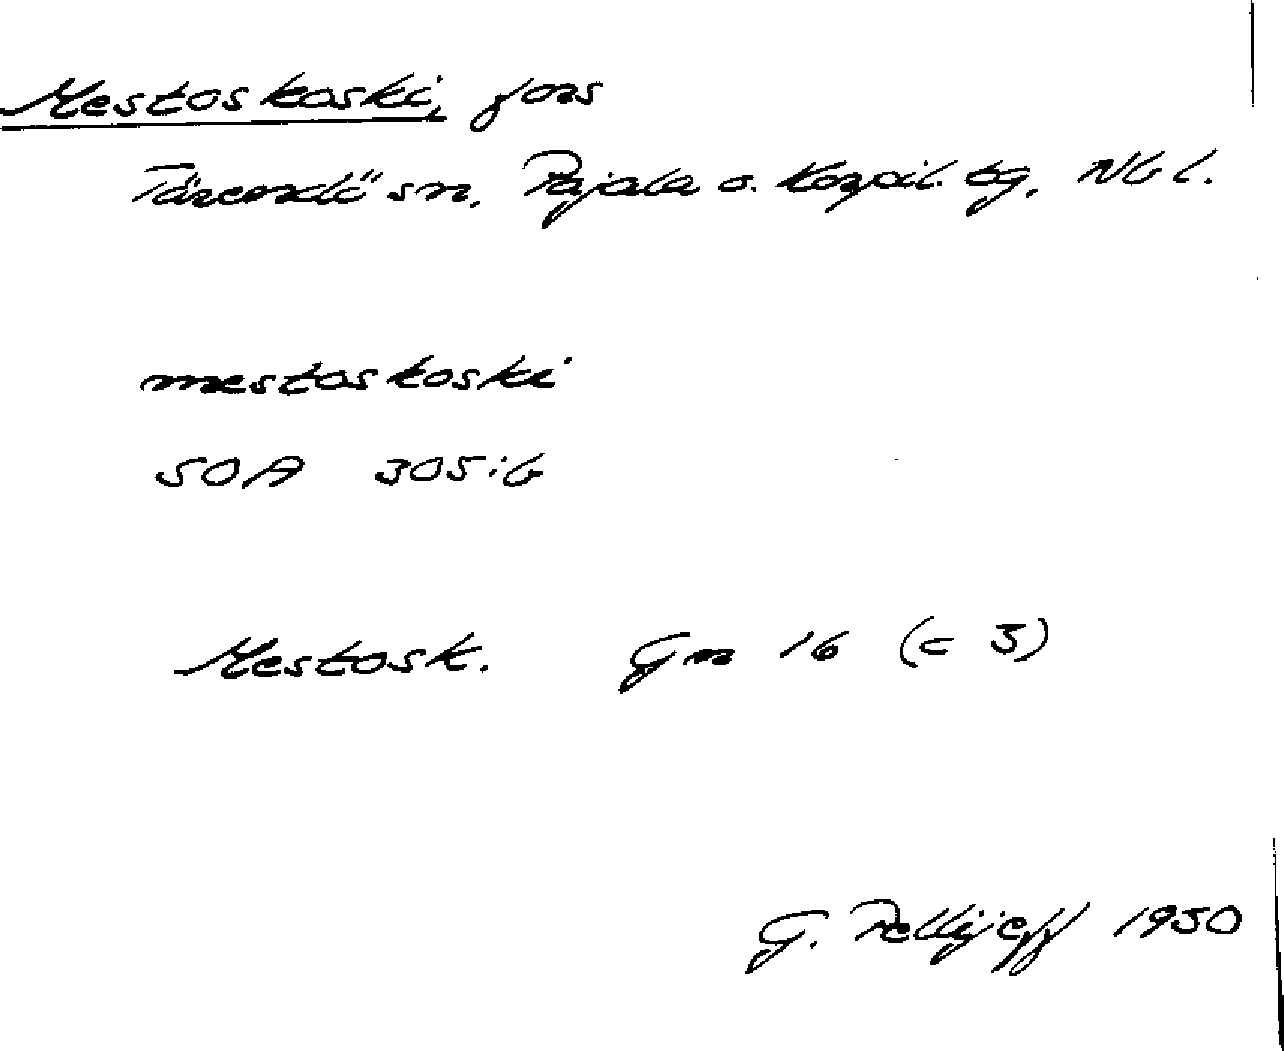 Mestoskoski, fors
Tärendö sn. Pajala o. Korpil. tg, Nb l.
mestoskoski
SOA 305:6
Mestosk. Gm 16 (= 3)
G. Pellijeff 1950